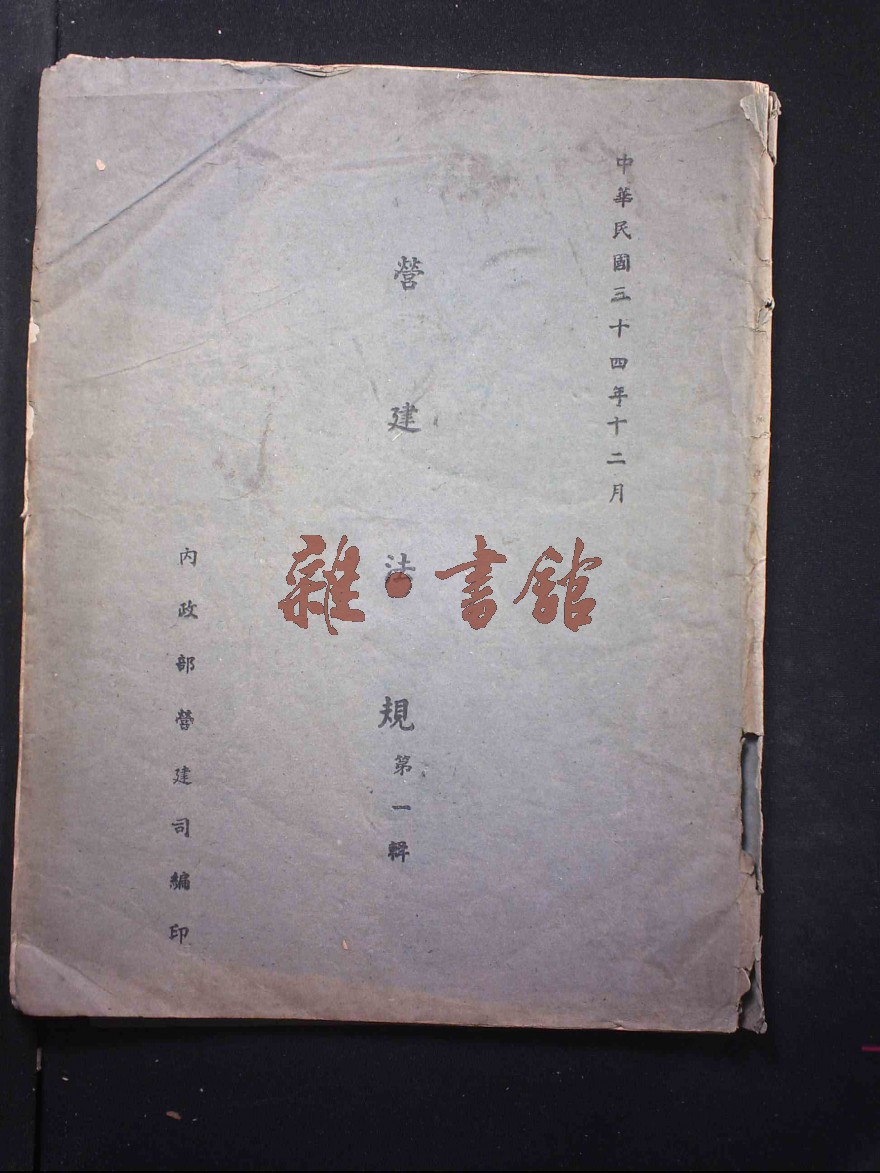 中華民國三十四年十二月
營建法規第一輯
內政部營建司編印
雜·書館